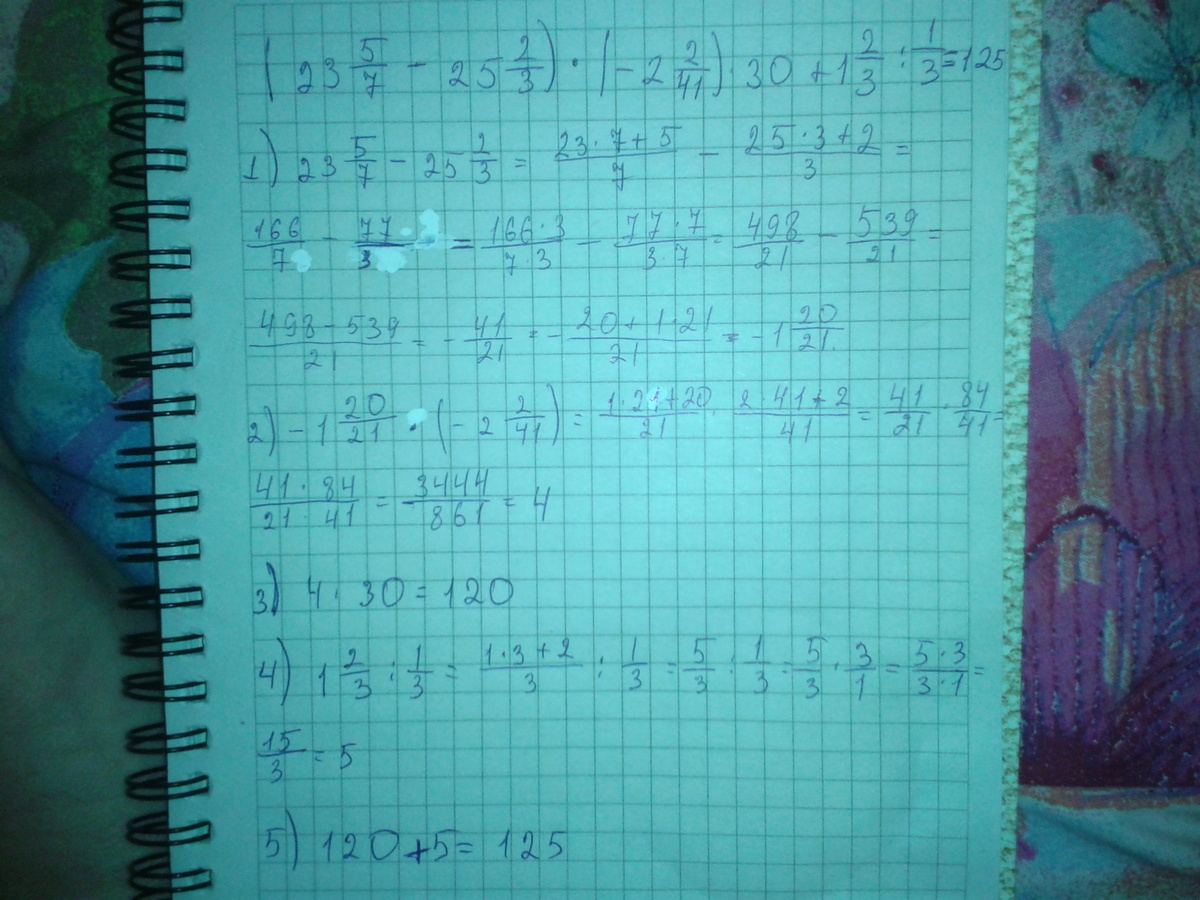 ( 23 5/7 - 25 2/3 ) · ( - 2 2/41 ) · 30 + 1 2/3 : 1/3 = 125
1) 23 5/7 - 25 2/3 = (23·7+5)/7 - (25·3+2)/3 =
166/7 - 77/3 = (166·3)/(7·3) - (77·7)/(3·7) = 498/21 - 539/21 =
(498-539)/21 = - 41/21 = - (20+1·21)/21 = - 1 20/21
2) - 1 20/21 · ( - 2 2/41 ) = (1·21+20)/21 · (2·41+2)/41 = 41/21 · 84/41 =
(41·84)/(21·41) = 3444/861 = 4
3) 4 · 30 = 120
4) 1 2/3 : 1/3 = (1·3+2)/3 : 1/3 = 5/3 : 1/3 = 5/3 · 3/1 = (5·3)/(3·1) =
15/3 = 5
5) 120 + 5 = 125